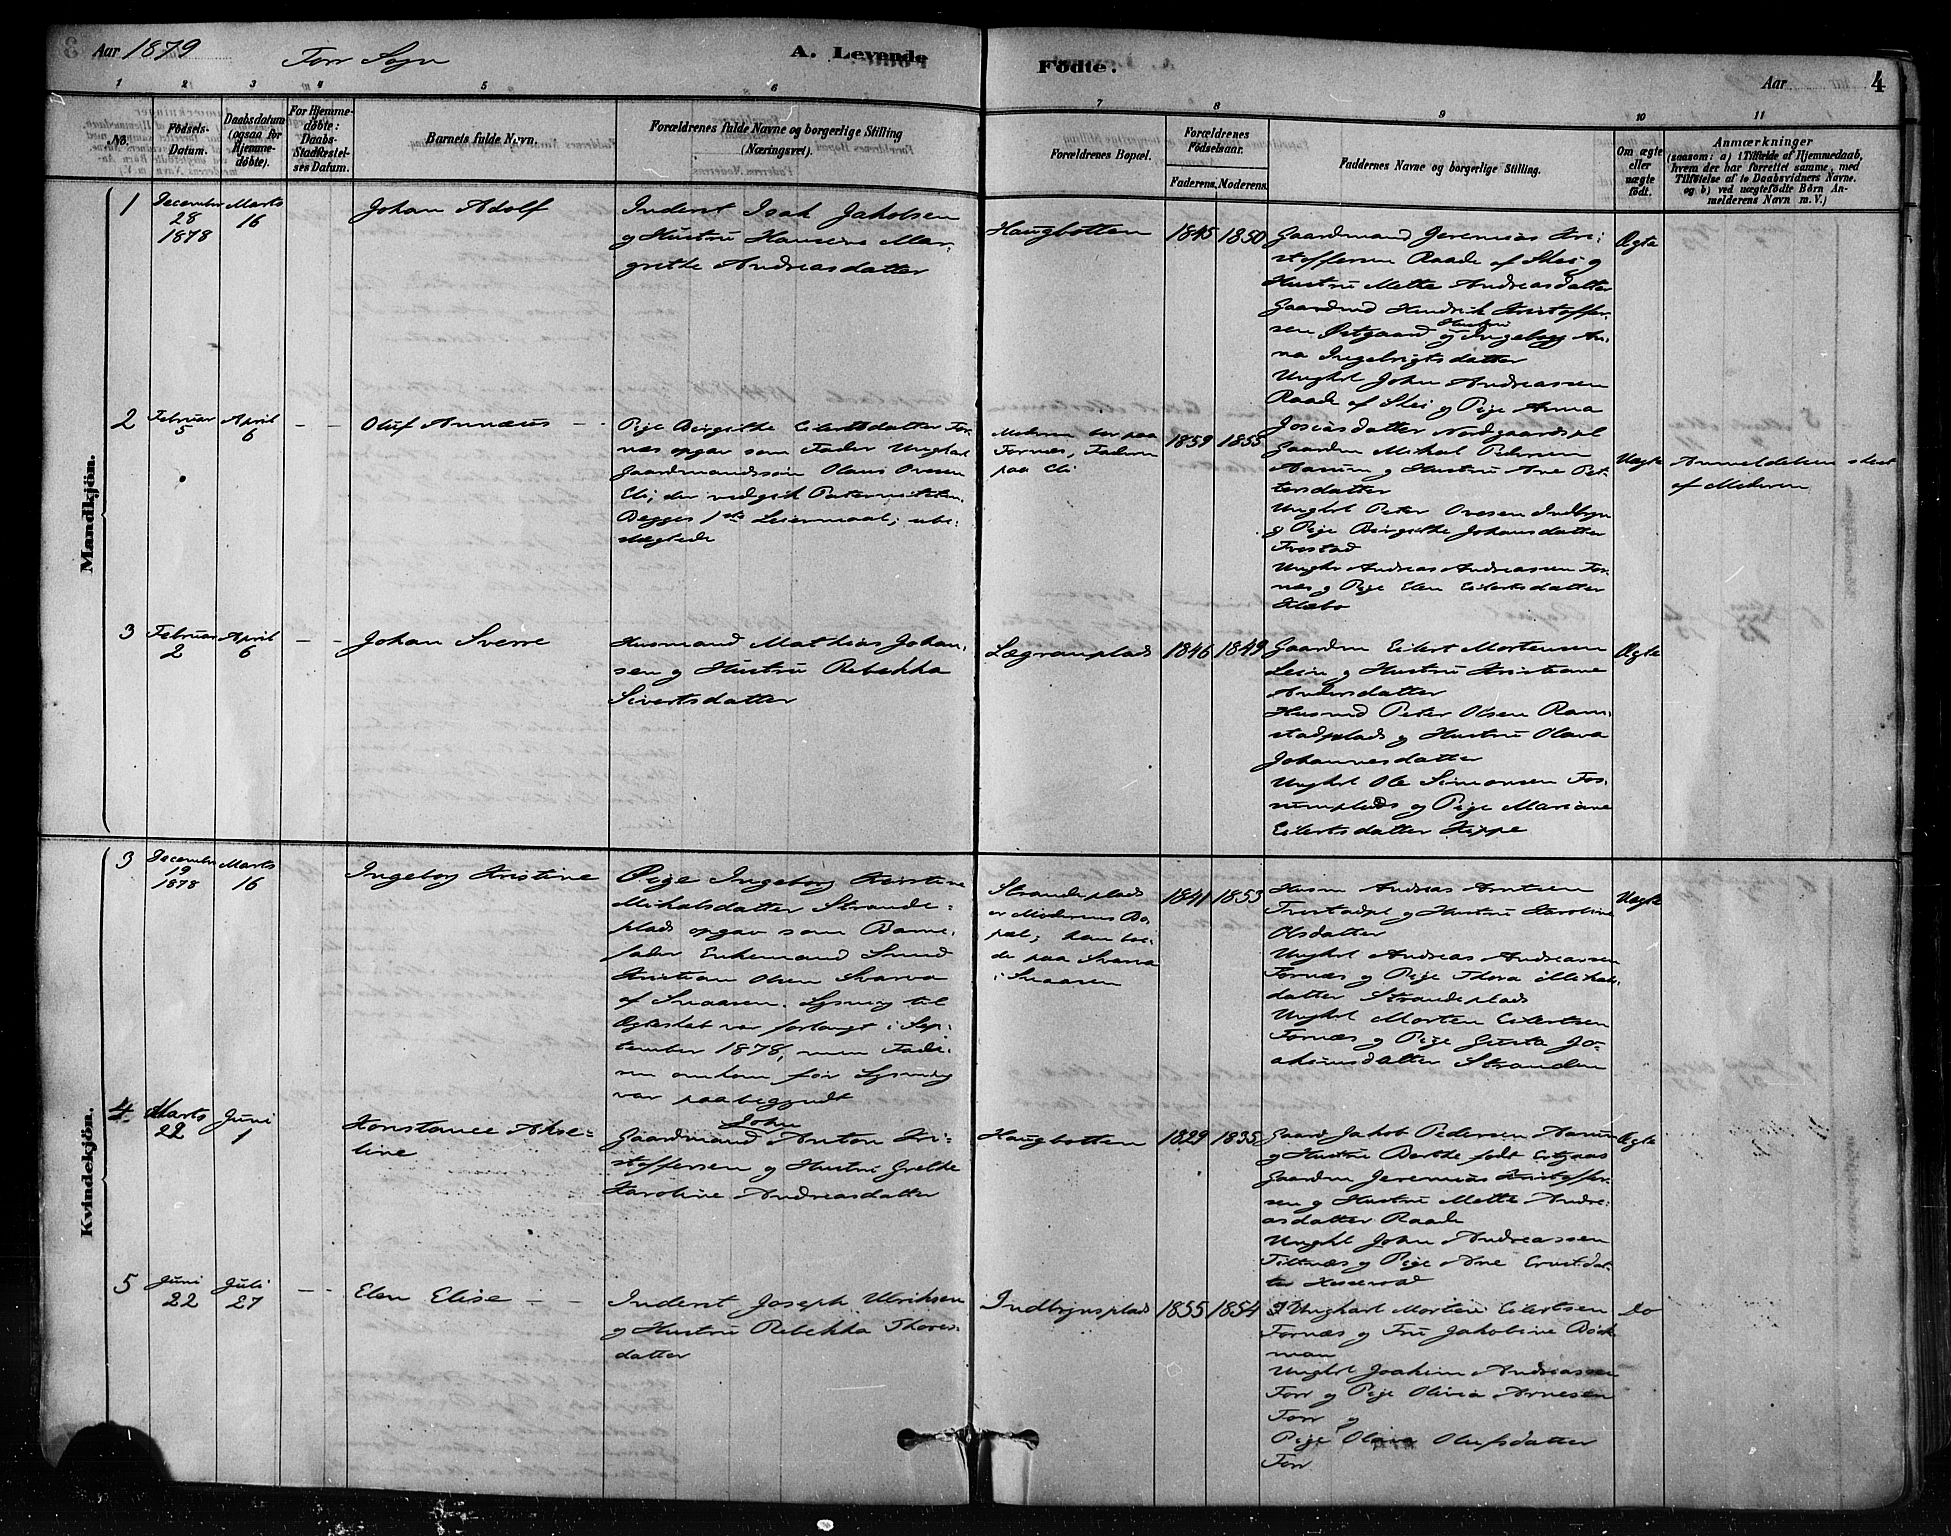 Aar 1879 For Sogn A. Levende Fødte. Aar 4
1 2 3 4 5 6 7 8 9 10 11
No. Fødsels-Datum. Daabsdatum (ogsaa for Hjemmedøbte). For Hjemmedøbte: Daabs-Stadfæstelses Datum. Barnets fulde Navn. Forældrenes fulde Navne og borgerlige Stilling (Næringsvei). Forældrenes Bopæl. Forældrenes Fødselsaar. Faderens. Moderens. Faddernes Navne og borgerlige Stilling. Om ægte eller uægte født. Anmærkninger (saasom: a) i Tilfælde af Hjemmedaab, hvem der har forrettet samme, med Tilføielse af to Daabsvidners Navne. og b) ved uægtefødte Børn Anmelderens Navn m. V.)
Mandkjön.
1 December 28 1878 Marts 16 Johan Adolf
Inderst Isak Jakobsen
og Hustru Hansine Mar-
grethe Andreasdatter
Haugbotten 1845 1850
Gaardmand Jeremias Kri-
stoffersen Raade af Skei og
Hustru Mette Andreasdatter
Gaardmd Hendrik Kristoffer-
sen Østgaard og Hustru Ingeborg An-
na Ingebrigtsdatter
Unghrl John Andreassen
Raade af Skei og Pige Anna
Josiasdatter Nordgaardspl
Ægte
2 Februar 5 April 6 - - Oluf Annæus - -
Pige Birgithe Eilertsdatter For-
næs opgav som Fader Ungkarl
Gaardmandssøn Olaus Ovesen
Eli, der vedgik Paterniteten.
Begges 1ste Leiermaal; ube-
slægtede
Moderen bor paa
Fornæs, Faderen
paa Eli
1859 1855
Gaardm Mikal Pedersen
Aarum og Hustru Ane Pe-
tersdatter
Unghrl Peter Ovesen Indbryn
og Pige Birgithe Johansdatter
Frostad
Unghr Andreas Andreassen For-
næs og Pige Elen Eilertsdatter
Klæbo
Uægte Anmeldelsen skeet
af Moderen
3 Februar 2 April 6 - - Johan Sverre
Husmand Mathias Johan-
sen og Hustru Rebekka
Sivertsdatter
Lægranplads 1846 1849
Gaardm Eilert Mortensen
Lein og Hustru Kristiane
Andersdatter
Husmd Peter Olsen Ram-
stadplads og Hustru Olava
Johannesdatter
Unghrl Ole Simonsen Fos-
sumplads og Pige Mariane
Eilertsdatter Kippe
Ægte
Kvindekjön.
3 December 19 1878 Marts 16 Ingeborg Kristine
Pige Ingeborg Kirstine
Mikalsdatter Strande-
plads opgav som Barne-
fader Enkemand Smed
Kristian Olsen Svarva
af Snaasen. Lysning til
Ægteskab var forlangt i Sep-
tember 1878, men Fade-
ren omkom før Lysning
var paabegyndt
Strandeplads
er Moderens Bo-
pæl; han bo-
de paa Svarva
i Snaasen
1841 1853
Husm Andreas Arntsen
Frostadpl og Hustru Karoline
Olsdatter
Unghrl Andreas Andreassen
Fornæs og Pige Thora Mikals-
datter Strandeplads
Unghrl Morten Eilertsen
Fornæs og Pige Gusta Jo-
akimsdatter Stranden
Uægte
4 Marts 22 Juni 1 Konstance Akse-
line
Gaardmand John Anton Kri-
stoffersen og Hustru Grethe
Karoline Andreasdatter
Haugbotten 1829 1835
Gaard Jakob Pedersen Aarum
og Hustru Berthe født
Gaardm Jeremias Kristoffer-
sen og Hustru Mette Andre-
asdatter Raade
Unghrl John Andreassen
Tiltnæs og Pige Ane Ernstdat-
ter
Ægte
5 Juni 22 Juli 27 - - Elen Elise - -
Inderst Joseph Ulriksen
og Hustru Rebekka Thores-
datter
Indbrynsplads 1855 1854
Unghrl Morten Eilertsen
Fornæs og Fru Jakobine Bøck-
man
Unghrl Joakim Andreassen
For og Pige Olivia Arnesen
For og
Pige Olava Olufsdatter
For
do